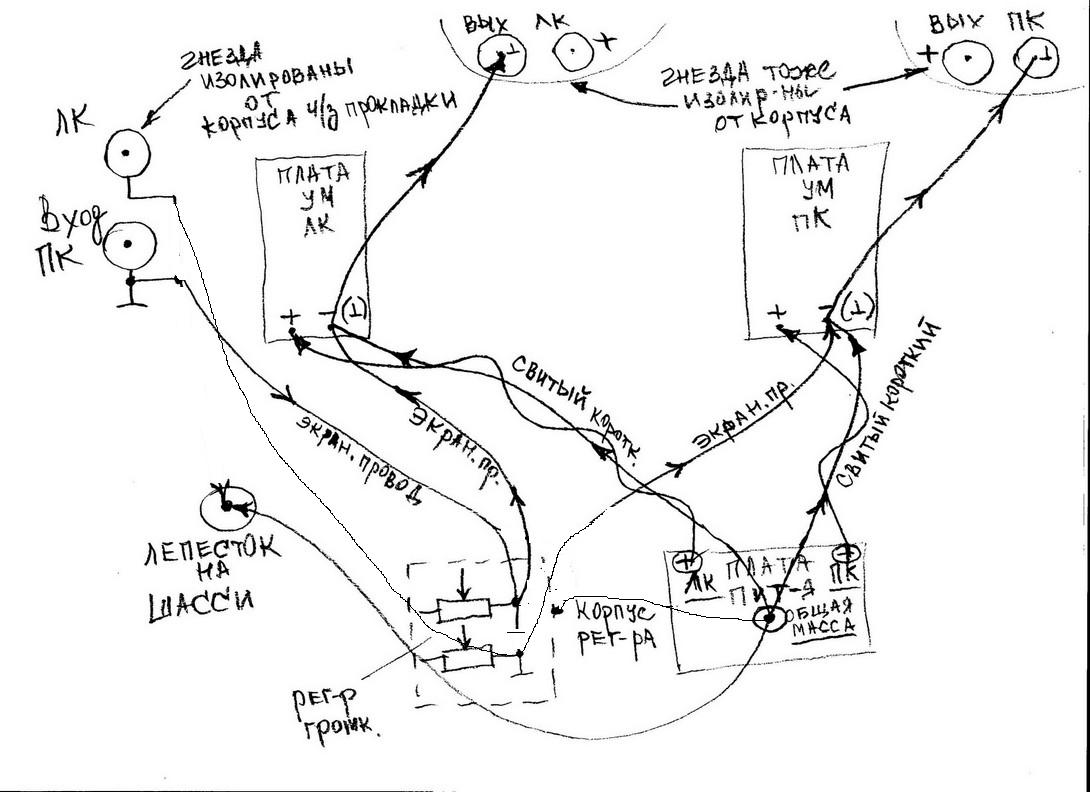 ВЫХ ЛК
+
ВЫХ ПК
+
ГНЕЗДА
ИЗОЛИРОВАНЫ
ОТ
КОРПУСА Ч/З ПРОКЛАДКИ
ГНЕЗДА ТОЖЕ
ИЗОЛИР-НЫ
ОТ КОРПУСА
ЛК
ВХОД
ПК
ПЛАТА
УМ
ЛК
+ - (⊥)
ПЛАТА
УМ
ПК
+ - (⊥)
СВИТЫЙ КОРОТК.
ЭКРАН.ПР.
СВИТЫЙ КОРОТКИЙ
ЭКРАН.ПР.
ЭКРАН.ПРОВОД
ЛЕПЕСТОК
НА
ШАССИ
КОРПУС
РЕГ-РА
+
ЛК
ПЛАТА
+
ПК
ОБЩАЯ
МАССА
РЕГ-Р
ГРОМК.